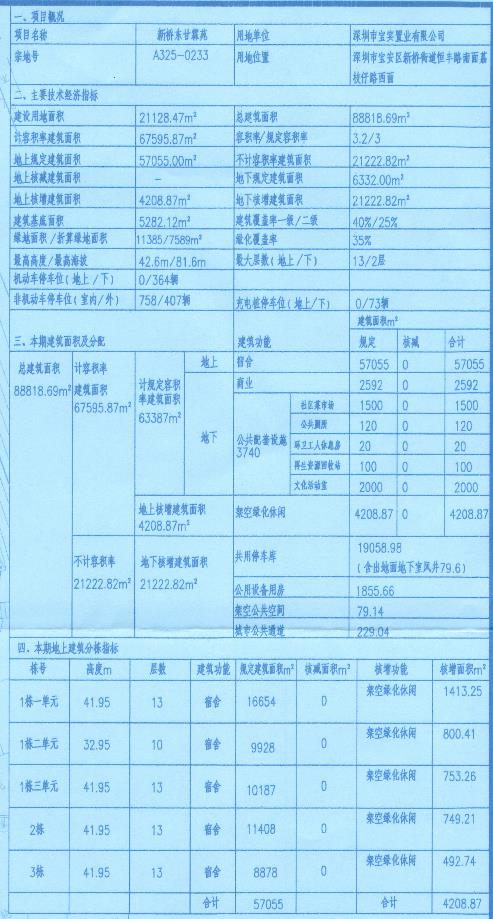 一、项目概况
项目名称 新桥东甘霖苑 用地单位 深圳市宝实置业有限公司
宗地号 A325-0233 用地位置 深圳市宝安区新桥街道恒丰路南面荔枝仔路西面
二、主要技术经济指标
建设用地面积 21128.47m² 总建筑面积 88818.69m²
计容积率建筑面积 67595.87m² 容积率/规定容积率 3.2/3
地上规定建筑面积 57055.00m² 不计容积率建筑面积 21222.82m²
地上核减建筑面积 — 地下规定建筑面积 6332.00m²
地上核增建筑面积 4208.87m² 地下核增建筑面积 21222.82m²
建筑基底面积 5282.12m² 建筑覆盖率一级/二级 40%/25%
绿地面积/折算绿地面积 11385/7589m² 绿化覆盖率 35%
最高高度/最高海拔 42.6m/81.6m 最大层数(地上/下) 13/2层
机动车停车位(地上/下) 0/364辆
非机动车停车位(室内/外) 758/407辆 充电桩停车位(地上/下) 0/73辆
三、本期建筑面积及分配 建筑功能 建筑面积m²
规定 核减 合计
总建筑面积 88818.69m²
计容积率建筑面积 67595.87m²
计规定容积率建筑面积 63387m²
地上 宿舍 57055 0 57055
地下 商业 2592 0 2592
公共配套设施 3740 社区菜市场 1500 0 1500
公共厕所 120 0 120
环卫工人休息房 20 0 20
再生资源回收站 100 0 100
文化活动室 2000 0 2000
地上核增建筑面积 4208.87m² 架空绿化休闲 4208.87 0 4208.87
不计容积率 21222.82m² 地下核增建筑面积 21222.82m² 共用停车库 19058.98
(含出地面地下室风井79.6)
公用设备用房 1855.66
架空公共空间 79.14
城市公共通道 229.04
四、本期地上建筑分栋指标
栋号 高度m 层数 建筑功能 规定建筑面积m² 核减面积m² 核增功能 核增面积m²
1栋一单元 41.95 13 宿舍 16654 0 架空绿化休闲 1413.25
1栋二单元 32.95 10 宿舍 9928 0 架空绿化休闲 800.41
1栋三单元 41.95 13 宿舍 10187 0 架空绿化休闲 753.26
2栋 41.95 13 宿舍 11408 0 架空绿化休闲 749.21
3栋 41.95 13 宿舍 8878 0 架空绿化休闲 492.74
合计 57055 合计 4208.87